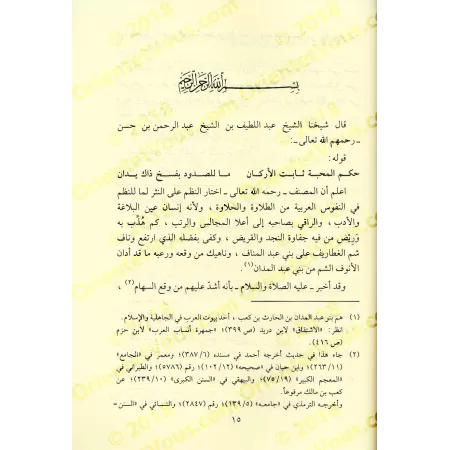 بسم الله الرحمن الرحيم
قال شيخنا الشيخ عبد اللطيف بن الشيخ عبد الرحمن بن حسن
ـ رحمهم الله تعالى ـ:
قوله:
حكم المحبة ثابت الأركان ما للصدود بفسخ ذاك يدان
اعلم أن المصنف ـ رحمه الله تعالى ـ اختار النظم على النثر لما للنظم
في النفوس العربية من الطلاوة والحلاوة، ولأنه إنسان عين البلاغة
والأدب، والراقي بصاحبه إلى أعلا المجالس والرتب، كم هُذِّب به
وَرِيْضَ من فيه جفاوة النجد والقريض، وكفى بفضله الذي ارتفع وناف
شم الغطاريف على بني عبد المناف، وناهيك من وقعه ورعبه ما قد أدان
الأنوف الشم من بني عبد المدان(١)
وقد أخبر ـ عليه الصلاة والسلام ـ بأنه أشدّ عليهم من وقع السهام(٢)،
(١) هم بنو عبد المدان بن الحارث بن كعب، أحد بيوت العرب في الجاهلية والإسلام.
انظر: «الاشتقاق» لابن دريد (ص ٣٩٩)؛ «جمهرة أنساب العرب» لابن حزم
(ص ٤١٦).
(٢) جاء هذا في حديث أخرجه أحمد في مسنده (٣٨٧/٦)؛ ومعمر في «الجامع»
(٢٦٣/١١)؛ وابن حبان في «صحيحه» (١٠٢/١٣) رقم (٥٧٨٦)؛ والطبراني في
«المعجم الكبير» (٧٥/١٩)؛ والبيهقي في «السنن الكبرى» (٢٣٩/١٠) عن
كعب بن مالك مرفوعاً.
وأخرجه الترمذي في «جامعه» (١٣٩/٥)؛ رقم (٢٨٤٧)؛ والنسائي في «السنن =
١٥
OrientVous.com © 2018